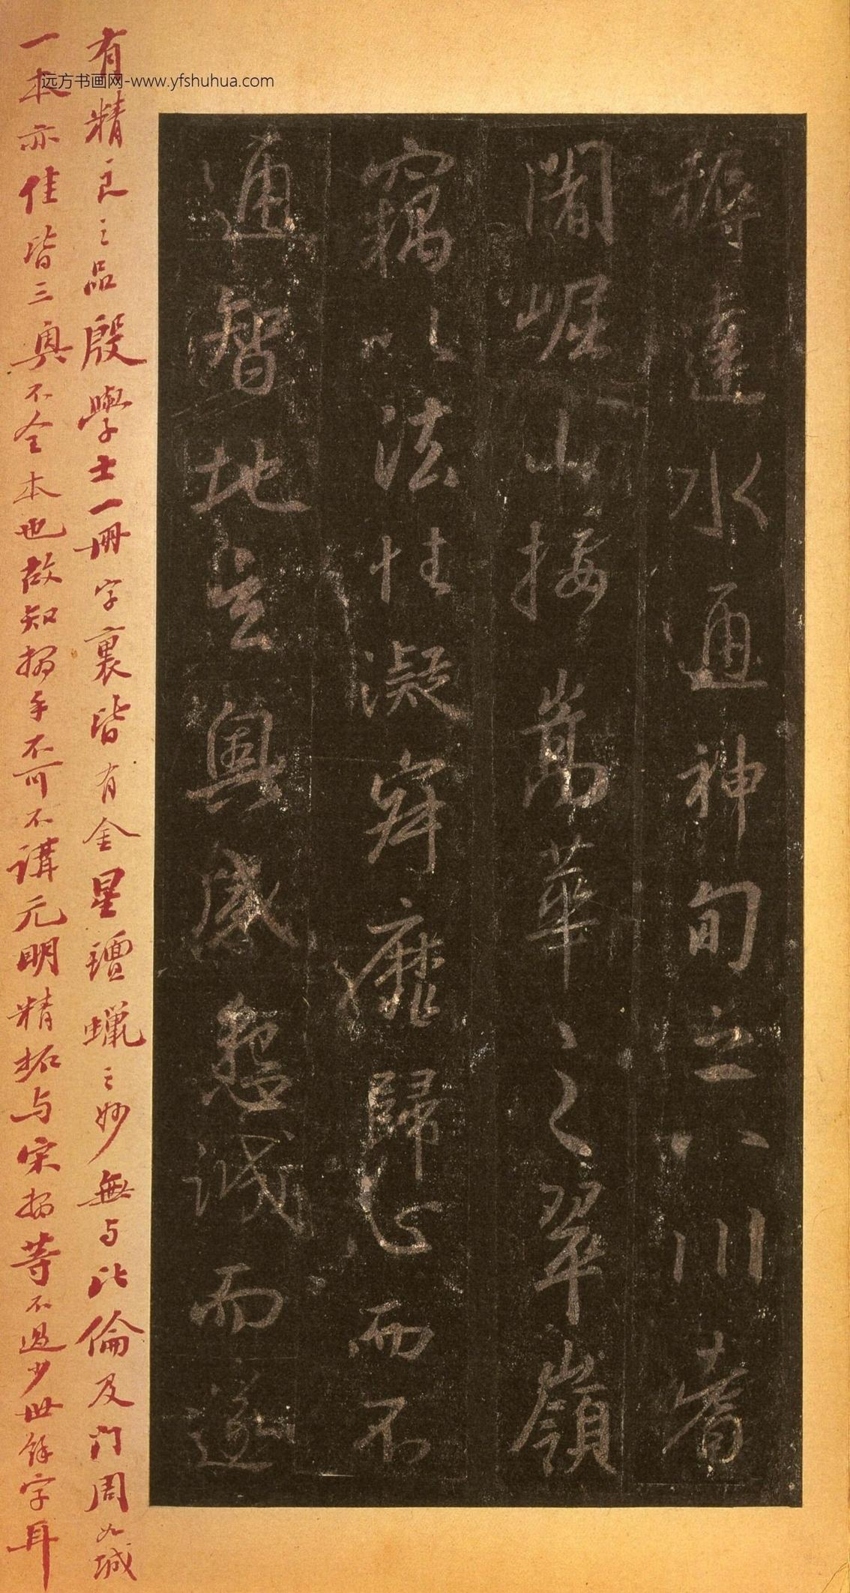 远方书画网-www.yfshuhua.com
耨達水通神甸之八川耆
闍崛山接嵩華之翠嶺
竊以法性凝寂靡歸心而不
通智地玄奧感懇誠而遂
有精良之品殷學士一冊字裏皆有金星璮蠟之妙無与比倫及门周九城
一本亦佳皆三奧不全本也故知搨手不可不講元明精拓与宋搨等不過少世餘字耳